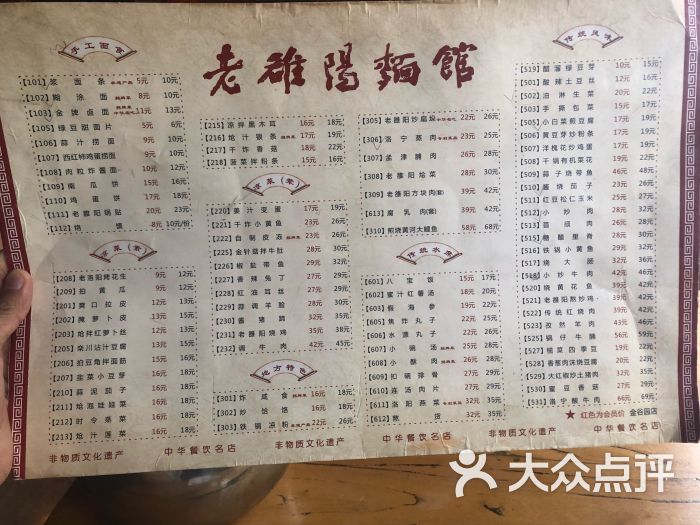 老雒陽麵館
手工面食
[101] 浆面条 非遗产品 5元 10元
[102] 糊涂面 招牌菜 8元 10元
[103] 金牌卤面 中华名吃 11元 13元
[105] 绿豆甜面片 5元 6元
[106] 蒜汁捞面 9元 12元
[107] 西红柿鸡蛋捞面 9元 12元
[108] 肉粒炸酱面 9元 12元
[109] 南瓜饼 15元 16元
[110] 鸡蛋饼 17元 19元
[111] 老雒阳锅贴 20元 23元
[112] 烙馍 8元 10元/份
凉菜(素)
[208] 老洛阳烤花生 9元 12元
[209] 拍黄瓜 9元 12元
[201] 爽口拉皮 12元 13元
[202] 腌萝卜皮 12元 15元
[203] 炝拌红萝卜丝 12元 13元
[205] 栾川沾汁豆腐 12元 13元
[206] 拍豆角拌面筋 15元 16元
[207] 韭菜小豆芽 15元 16元
[210] 蒜泥茄子 15元 16元
[211] 炝泡娃娃菜 16元 18元
[212] 时令苋菜 16元 18元
[213] 炝汁莲菜 16元 18元
[215] 凉拌黑木耳 16元 18元
[216] 炝汁银条 招牌菜 17元 19元
[217] 干炸香菇 18元 22元
[218] 菠菜拌粉条 15元 16元
凉菜(荤)
[220] 姜汁变蛋 17元 19元
[221] 干炸小黄鱼 23元 25元
[222] 自制皮冻 招牌菜 23元 25元
[225] 金针菇拌牛肚 28元 30元
[226] 椒盐带鱼 29元 30元
[227] 香辣兔丁 29元 31元
[228] 红油耳丝 27元 29元
[229] 蒜调羊脸 28元 30元
[230] 酱猪蹄 32元 35元
[231] 老雒阳烧鸡 32元 35元
[232] 调牛肉 42元 45元
地方特色
[301] 炸咸食 招牌菜 16元 18元
[302] 炒饸饹 16元 18元
[303] 铁锅凉粉 非遗产品 22元 26元
[305] 老雒阳炒扁垛 中华名吃 22元 26元
[306] 洛宁蒸肉 专利菜品 23元 25元
[307] 孟津脯肉 28元 30元
[308] 老雒阳烩菜 28元 30元
[309] 老雒阳方块肉(套) 39元 42元
[613] 腐乳肉(套) 39元 42元
[310] 煎烧黄河大鲤鱼 58元 68元
传统水席
[601] 八宝饭 15元 17元
[602] 蜜汁红薯汤 18元 20元
[603] 假海参 19元 22元
[605] 焦炸丸子 22元 25元
[606] 水漂丸子 22元 25元
[607] 小碗汤 招牌菜 25元 30元
[608] 小酥肉 招牌菜 28元 30元
[609] 扣碗排骨 27元 30元
[610] 连汤肉片 27元 30元
[611] 洛阳燕菜 专利菜品 32元 35元
[612] 熬货 32元 35元
传统风味
[519] 醋溜绿豆芽 10元 15元
[501] 酸辣土豆丝 12元 16元
[502] 油淋生菜 20元 22元
[503] 手撕包菜 15元 16元
[505] 小白菜煎豆腐 16元 18元
[506] 黄豆芽炒粉条 17元 19元
[507] 洋槐花炒鸡蛋
[508] 干锅有机菜花
[509] 蒜子烧带鱼
[510] 酱烧茄子
[511] 红豆松仁玉米 25元
[512] 小炒肉 28元
[513] 苜蓿肉 26元
[515] 糖醋里脊 28元
[516] 铁锅小黄鱼 35元
[517] 烧大肠 36元
[518] 小炒牛肉 39元
[520] 烧黄花鱼
[521] 老雒阳熬炒鸡
[522] 传统红烧肉 39元
[523] 孜然羊肉 46元
[525] 锅仔牛腩 56元
[527] 榄菜四季豆 19元 22元
[528] 香葱肉沫烧豆腐 20元 22元
[529] 大红椒炒土猪肉 32元 35元
[530] 蜜豆香菇 27元 29元
[531] 洛宁酸牛肉 66元 69元
★ 红色为会员价 金谷园店
非物质文化遗产 中华餐饮名店 非物质文化遗产 中华餐饮名店 非物质文化遗产 中华餐饮名店
大众点评